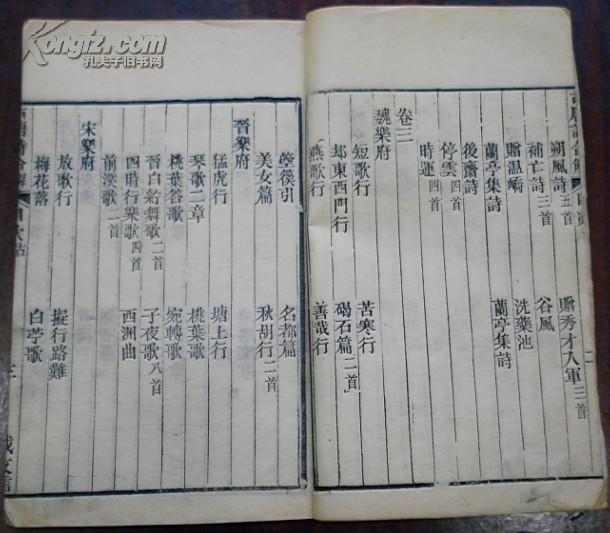 Kongfz.com
孔夫子旧书网
朔風詩五首 贈秀才入軍三首
補亡詩三首 谷風
贈温嶠 洗藥池
蘭亭集詩 蘭亭集詩
後齋詩
停雲四首
時運四首
卷三
魏樂府
短歌行 苦寒行
却東西門行 碣石篇二首
燕歌行 善哉行
箜篌引 名都篇
美女篇 秋胡行二首
晉樂府
猛虎行 塘上行
琴歌二章 桃葉歌
桃葉答歌 宛轉歌
晉白紵舞歌二首 子夜歌八首
四時行樂歌四首 西洲曲
前溪歌二首
宋樂府
放歌行 擬行路難
梅花落 白苧歌